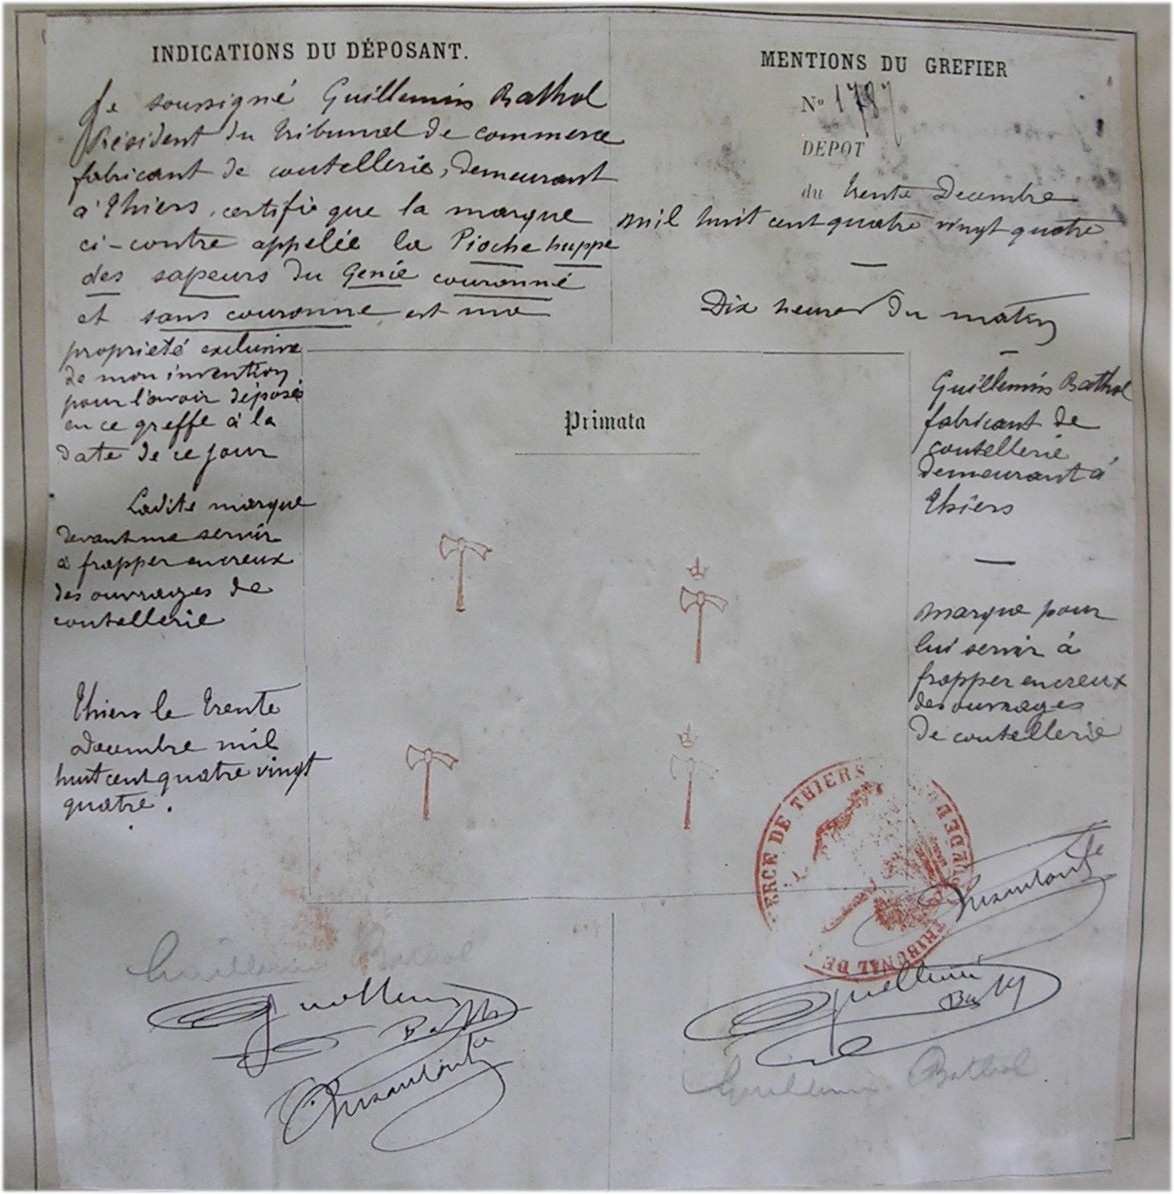 INDICATIONS DU DÉPOSANT.
Je soussigné Guillemin Bathol
Président du tribunal de commerce
fabricant de coutellerie, demeurant
à Thiers, certifie que la marque
ci-contre appelée la Pioche huppe
des sapeurs du Génie couronné
et sans couronne est ma
propriété exclusive
de mon invention
pour l'avoir déposé
en ce greffe à la
date de ce jour
Ladite marque
devant me servir
à frapper en creux
des ouvrages de
coutellerie
Thiers le trente
décembre mil
huit cent quatre vingt
quatre.
MENTIONS DU GREFIER
No 1787
DEPOT
du trente Decembre
mil huit cent quatre vingt quatre
Dix heures du matin
Primata
Guillemin Bathol
fabricant de
coutellerie
demeurant à
Thiers
marque pour
lui servir à
frapper en creux
des ouvrages
de coutellerie
ERCE DE THIERS
TRIBUNAL DE
Guillemin Bathol
Guillemin
Bathol
Guillemin
Bathol
Guillemin Bathol